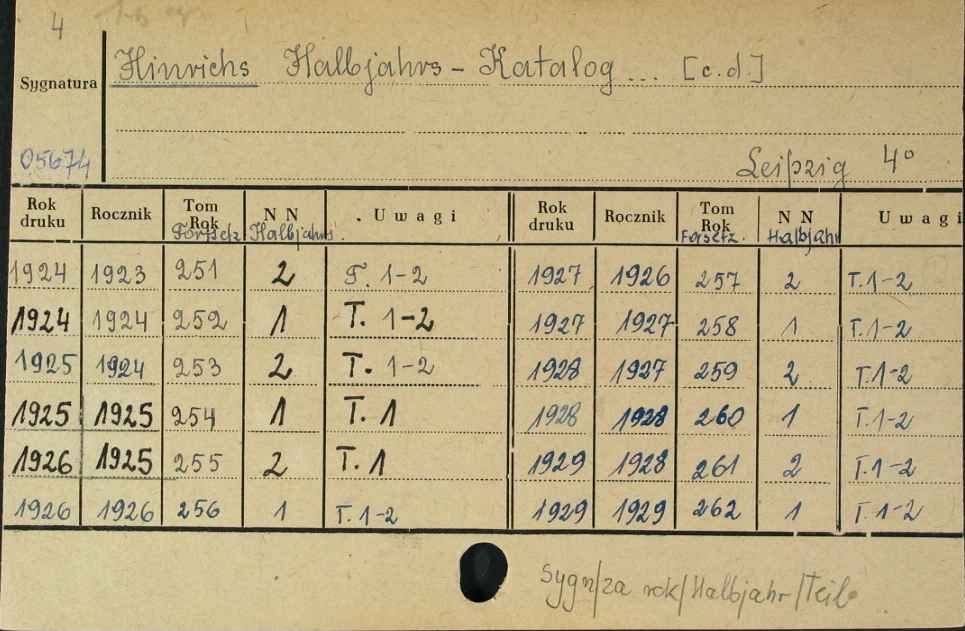 4
Sygnatura
Hinrichs Halbjahrs-Katalog ... [c.d.]
05674
Leipzig 4°
Rok druku Rocznik Tom Rok Forsetz. N N Halbjahrs. Uwagi Rok druku Rocznik Tom Rok Forsetz. N N Halbjahr Uwagi
1924 1923 251 2 T. 1-2 1927 1926 257 2 T. 1-2
1924 1924 252 1 T. 1-2 1927 1927 258 1 T. 1-2
1925 1924 253 2 T. 1-2 1928 1927 259 2 T. 1-2
1925 1925 254 1 T. 1 1928 1928 260 1 T. 1-2
1926 1925 255 2 T. 1 1929 1928 261 2 T. 1-2
1926 1926 256 1 T. 1-2 1929 1929 262 1 T. 1-2
Sygn/za rok/Halbjahr/Teil